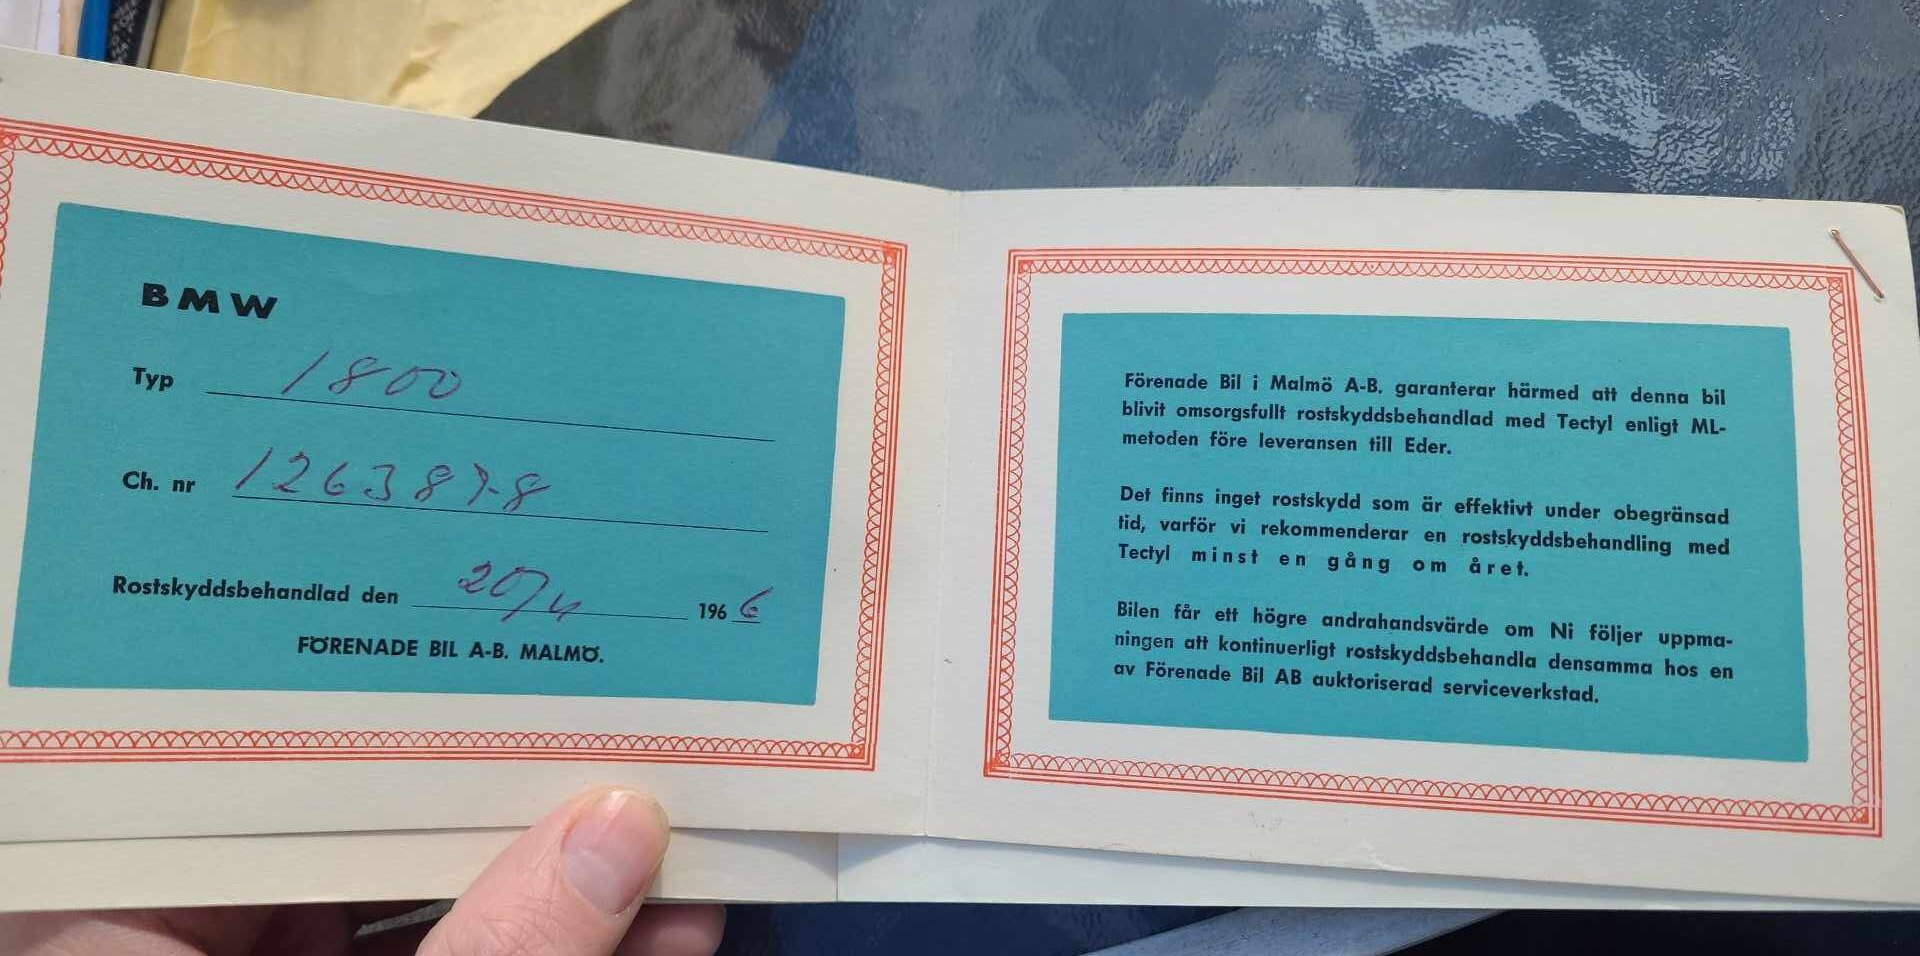 BMW
Typ 1800
Ch. nr 126387-8
Rostskyddsbehandlad den 20/4 1966
FÖRENADE BIL A-B. MALMÖ.
Förenade Bil i Malmö A-B. garanterar härmed att denna bil
blivit omsorgsfullt rostskyddsbehandlad med Tectyl enligt ML-
metoden före leveransen till Eder.
Det finns inget rostskydd som är effektivt under obegränsad
tid, varför vi rekommenderar en rostskyddsbehandling med
Tectyl minst en gång om året.
Bilen får ett högre andrahandsvärde om Ni följer uppma-
ningen att kontinuerligt rostskyddsbehandla densamma hos en
av Förenade Bil AB auktoriserad serviceverkstad.